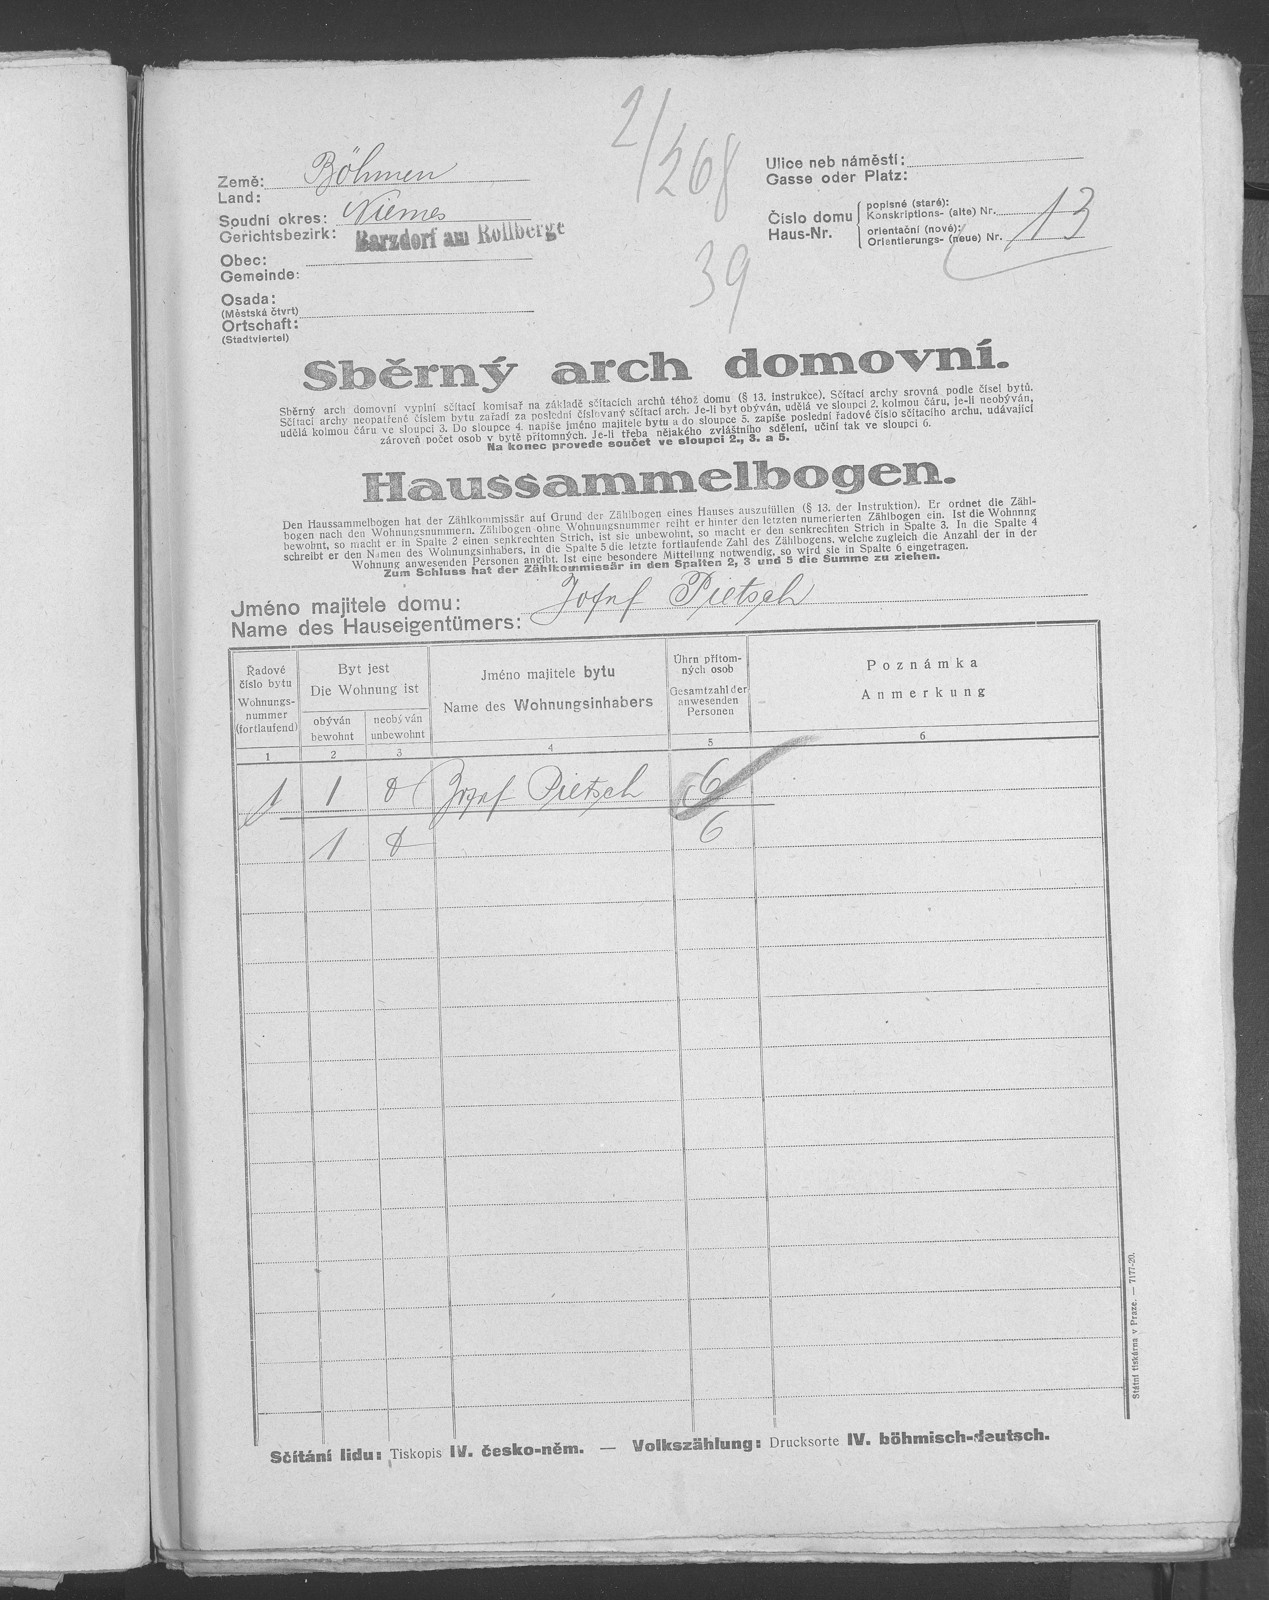 2/268
39
Země: Böhmen
Land:
Soudní okres: Niemes
Gerichtsbezirk: Barzdorf am Rollberge
Obec:
Gemeinde:
Osada:
(Městská čtvrt)
Ortschaft:
(Stadtviertel)
Ulice neb náměstí:
Gasse oder Platz:
Číslo domu
Haus-Nr.
popisné (staré):
Konskriptions- (alte) Nr.
orientační (nové):
Orientierungs- (neue) Nr.
13
Sběrný arch domovní.
Sběrný arch domovní vyplní sčítací komisař na základě sčítacích archů téhož domu (§ 13. instrukce). Sčítací archy srovná podle čísel bytů.
Sčítací archy neopatřené číslem bytu zařadí za poslední číslovaný sčítací arch. Je-li byt obýván, udělá ve sloupci 2. kolmou čáru, je-li neobýván,
udělá kolmou čáru ve sloupci 3. Do sloupce 4. napíše jméno majitele bytu a do sloupce 5. zapíše poslední řadové číslo sčítacího archu, udávající
zároveň počet osob v bytě přítomných. Je-li třeba nějakého zvláštního sdělení, učiní tak ve sloupci 6.
Na konec provede součet ve sloupci 2., 3. a 5.
Haussammelbogen.
Den Haussammelbogen hat der Zählkommissär auf Grund der Zählbogen eines Hauses auszufüllen (§ 13. der Instruktion). Er ordnet die Zähl-
bogen nach den Wohnungsnummern. Zählbogen ohne Wohnungsnummer reiht er hinter den letzten numerierten Zählbogen ein. Ist die Wohnnng
bewohnt, so macht er in Spalte 2 einen senkrechten Strich, ist sie unbewohnt, so macht er den senkrechten Strich in Spalte 3. In die Spalte 4
schreibt er den Namen des Wohnungsinhabers, in die Spalte 5 die letzte fortlaufende Zahl des Zählbogens, welche zugleich die Anzahl der in der
Wohnung anwesenden Personen angibt. Ist eine besondere Mitteilung notwendig, so wird sie in Spalte 6 eingetragen.
Zum Schluss hat der Zählkommissär in den Spalten 2, 3 und 5 die Summe zu ziehen.
Jméno majitele domu: Josef Pietsch
Name des Hauseigentümers:
Řadové
číslo bytu
Wohnungs-
nummer
(fortlaufend)
Byt jest
Die Wohnung ist
obýván
bewohnt
neobýván
unbewohnt
Jméno majitele bytu
Name des Wohnungsinhabers
Úhrn přítom-
ných osob
Gesamtzahl der
anwesenden
Personen
Poznámka
Anmerkung
1 2 3 4 5 6
1 1 0 Josef Pietsch 6
1 0 6
Sčítání lidu: Tiskopis IV. česko-něm. — Volkszählung: Drucksorte IV. böhmisch-deutsch.
Státní tiskárna v Praze. — 7177-20.